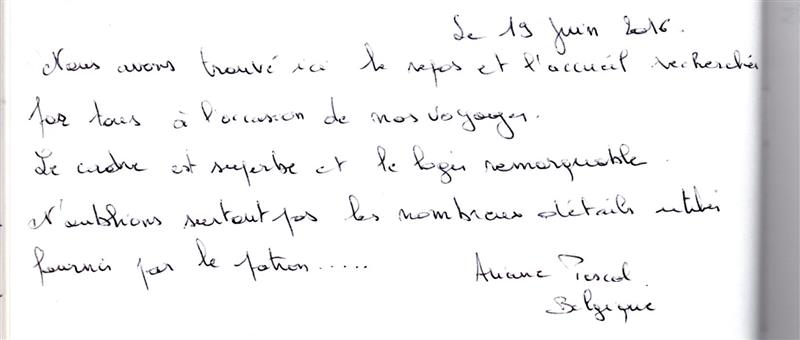 Le 19 Juin 2016.
Nous avons trouvé ici le repos et l'accueil recherchés
par tous à l'occasion de nos voyages.
Le cadre est superbe et le logis remarquable.
N'oublions surtout pas les nombreux détails utiles
fournis par le patron.....
Ariane Pascal
Belgique